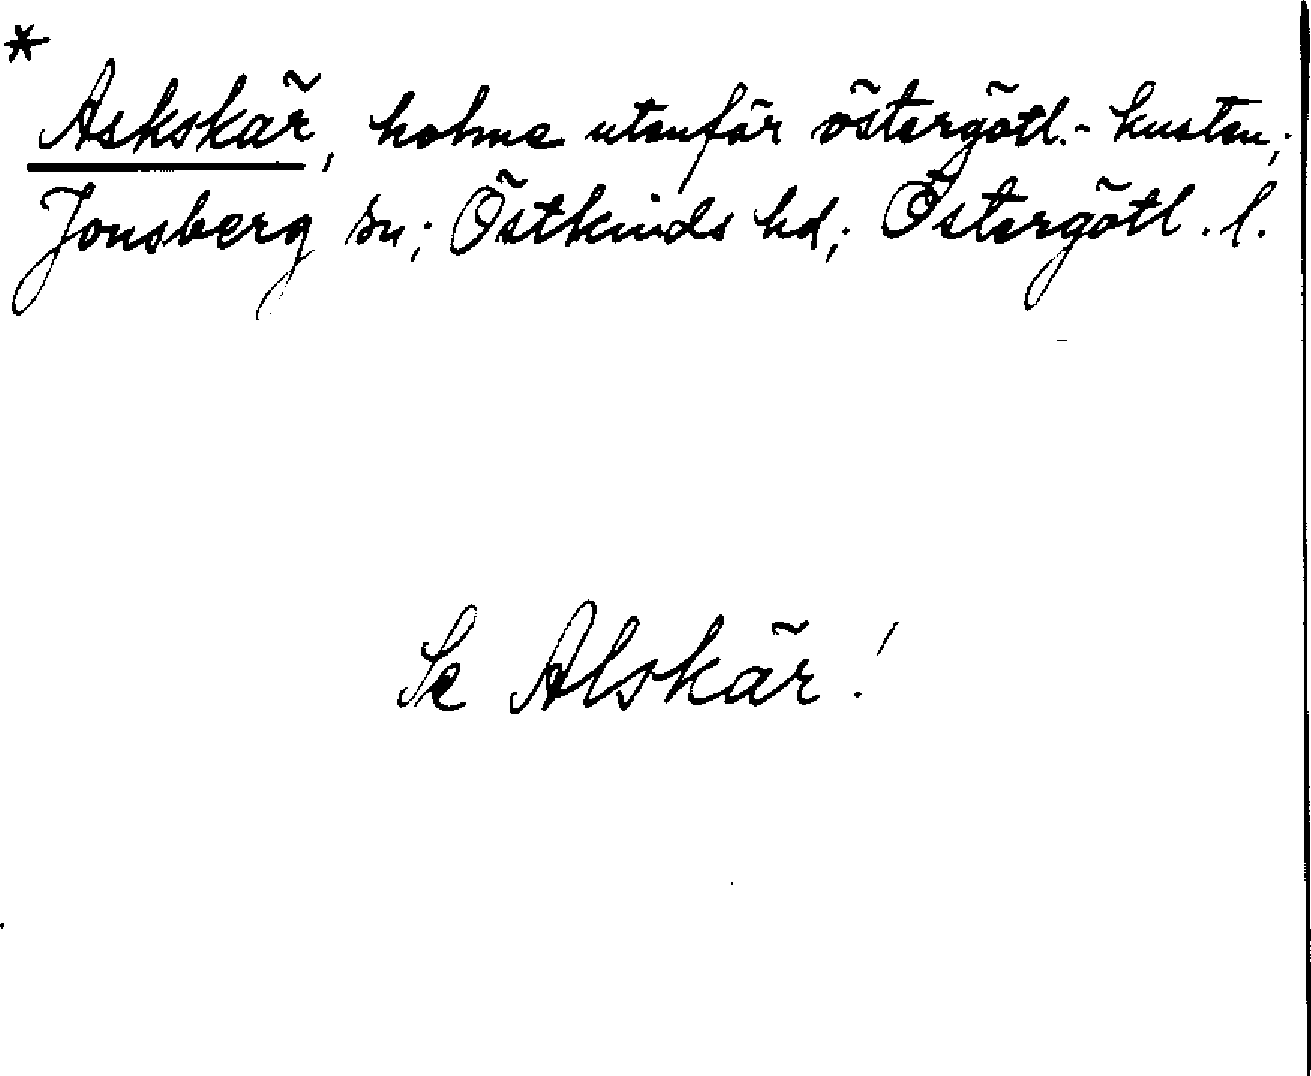 *
Askskär, holme utanför östergötl.- kusten;
Jonsberg sn; Östkinds hd; Östergötl. l.
Se Alskär!